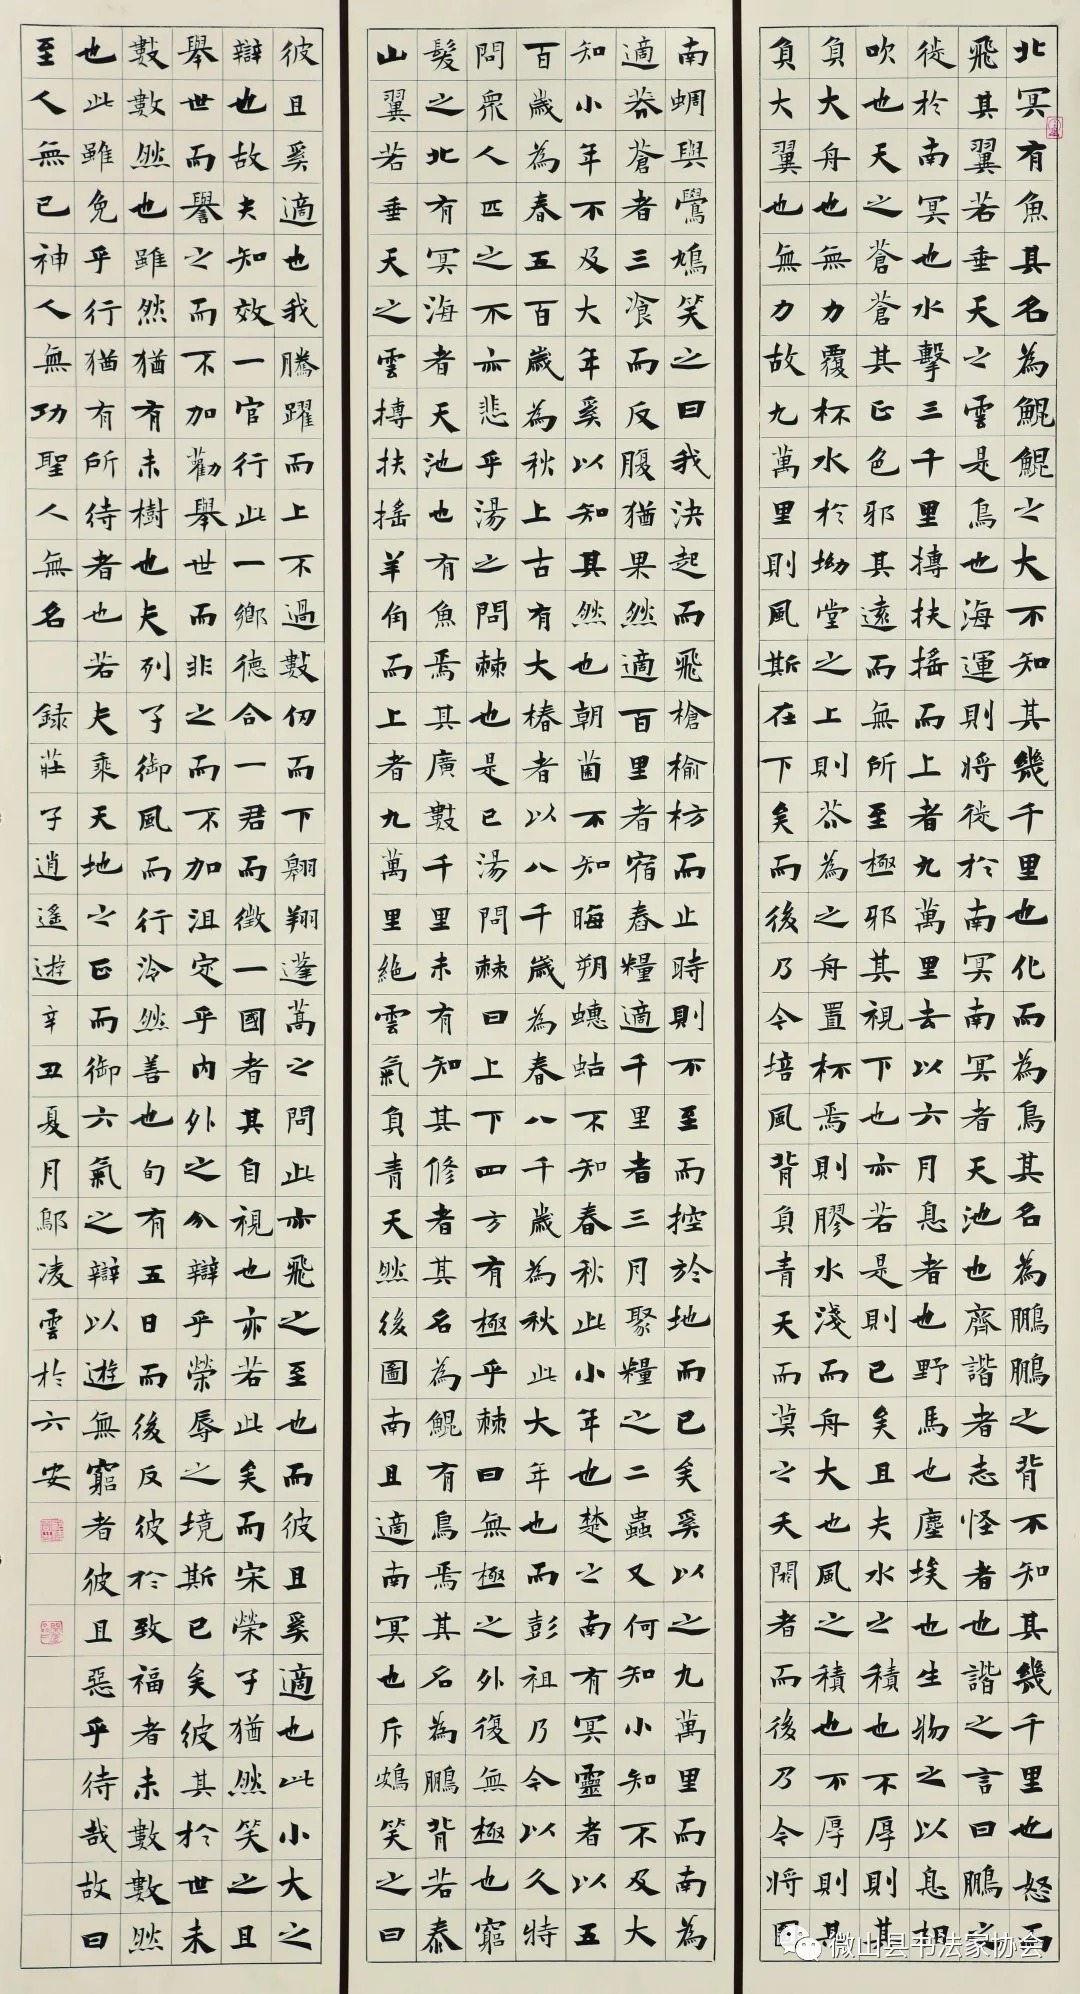 北冥有魚其名為鯤鯤之大不知其幾千里也化而為鳥其名為鵬鵬之背不知其幾千里也怒而
飛其翼若垂天之雲是鳥也海運則將徙於南冥南冥者天池也齊諧者志怪者也諧之言曰鵬之
徙於南冥也水擊三千里摶扶搖而上者九萬里去以六月息者也野馬也塵埃也生物之以息相
吹也天之蒼蒼其正色邪其遠而無所至極邪其視下也亦若是則已矣且夫水之積也不厚則其
負大舟也無力覆杯水於坳堂之上則芥為之舟置杯焉則膠水淺而舟大也風之積也不厚則其
負大翼也無力故九萬里則風斯在下矣而後乃今培風背負青天而莫之夭閼者而後乃今將圖
南蜩與鷽鳩笑之曰我決起而飛槍榆枋而止時則不至而控於地而已矣奚以之九萬里而南為
適莽蒼者三飡而反腹猶果然適百里者宿舂糧適千里者三月聚糧之二蟲又何知小知不及大
知小年不及大年奚以知其然也朝菌不知晦朔蟪蛄不知春秋此小年也楚之南有冥靈者以五
百歲為春五百歲為秋上古有大椿者以八千歲為春八千歲為秋此大年也而彭祖乃今以久特
問衆人匹之不亦悲乎湯之問棘也是已湯問棘曰上下四方有極乎棘曰無極之外復無極也窮
髮之北有冥海者天池也有魚焉其廣數千里未有知其修者其名為鯤有鳥焉其名為鵬背若泰
山翼若垂天之雲摶扶搖羊角而上者九萬里絕雲氣負青天然後圖南且適南冥也斥鴳笑之曰
彼且奚適也我騰躍而上不過數仞而下翱翔蓬蒿之問此亦飛之至也而彼且奚適也此小大之
辯也故夫知效一官行此一鄉德合一君而徵一國者其自視也亦若此矣而宋榮子猶然笑之且
舉世而譽之而不加勸舉世而非之而不加沮定乎內外之分辯乎榮辱之境斯已矣彼其於世未
數數然也雖然猶有未樹也夫列子御風而行泠然善也旬有五日而後反彼於致福者未數數然
也此雖免乎行猶有所待者也若夫乘天地之正而御六氣之辯以遊無窮者彼且惡乎待哉故曰
至人無已神人無功聖人無名 録莊子逍遙遊辛丑夏月鄔凌雲於六安
微山县书法家协会